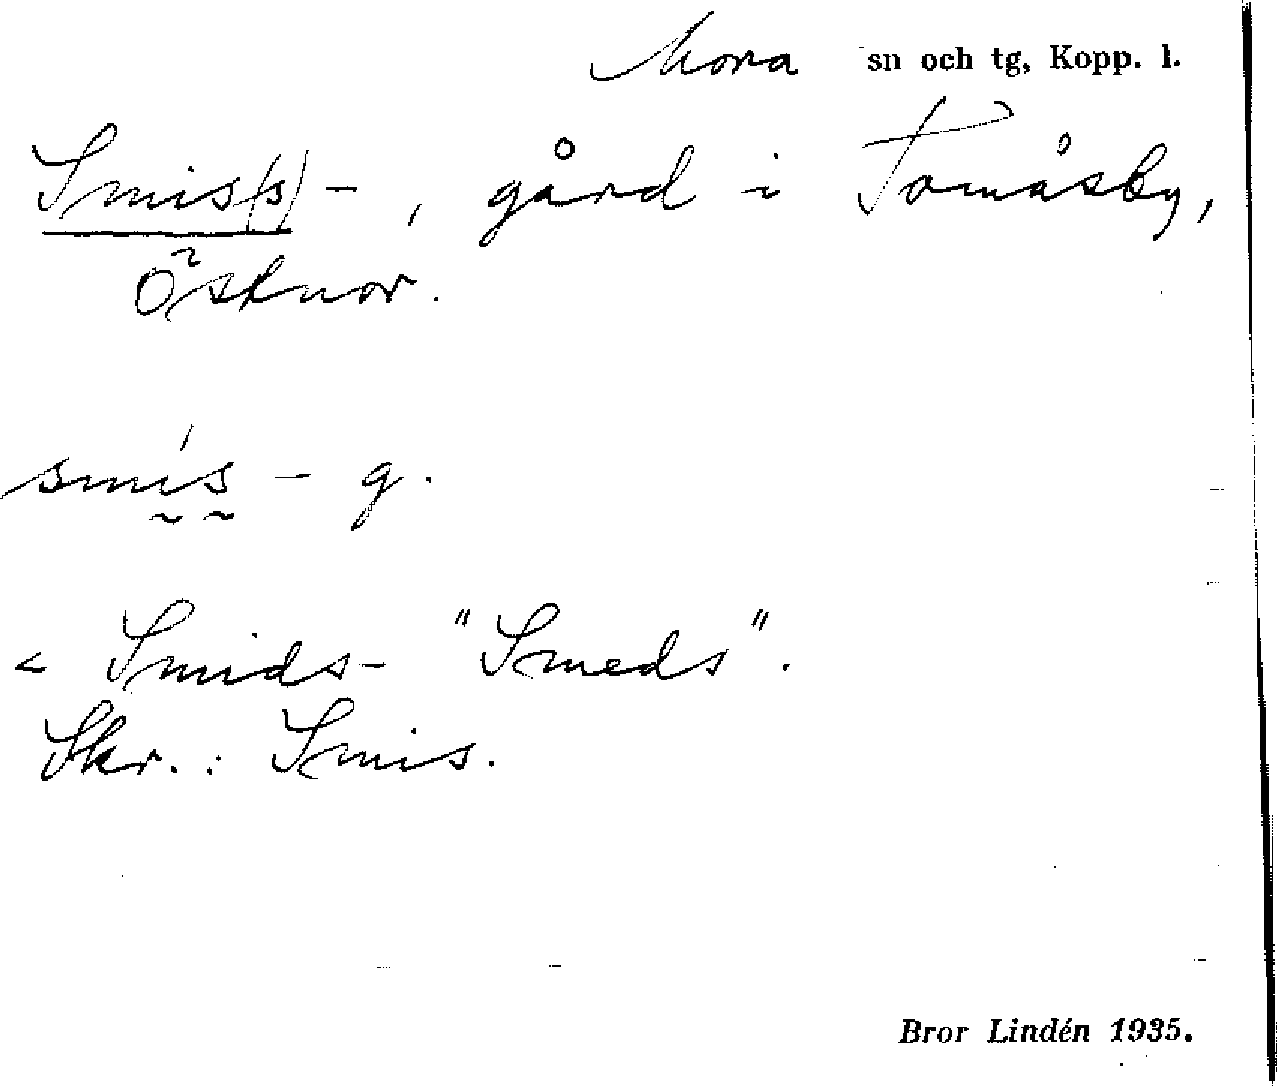 Mora sn och tg, Kopp. l.
Smis(s)-, gård i Tomåsby,
Östnor.
smís - g.
< Smids- "Smeds".
Skr.: Smis.
Bror Lindén 1935.